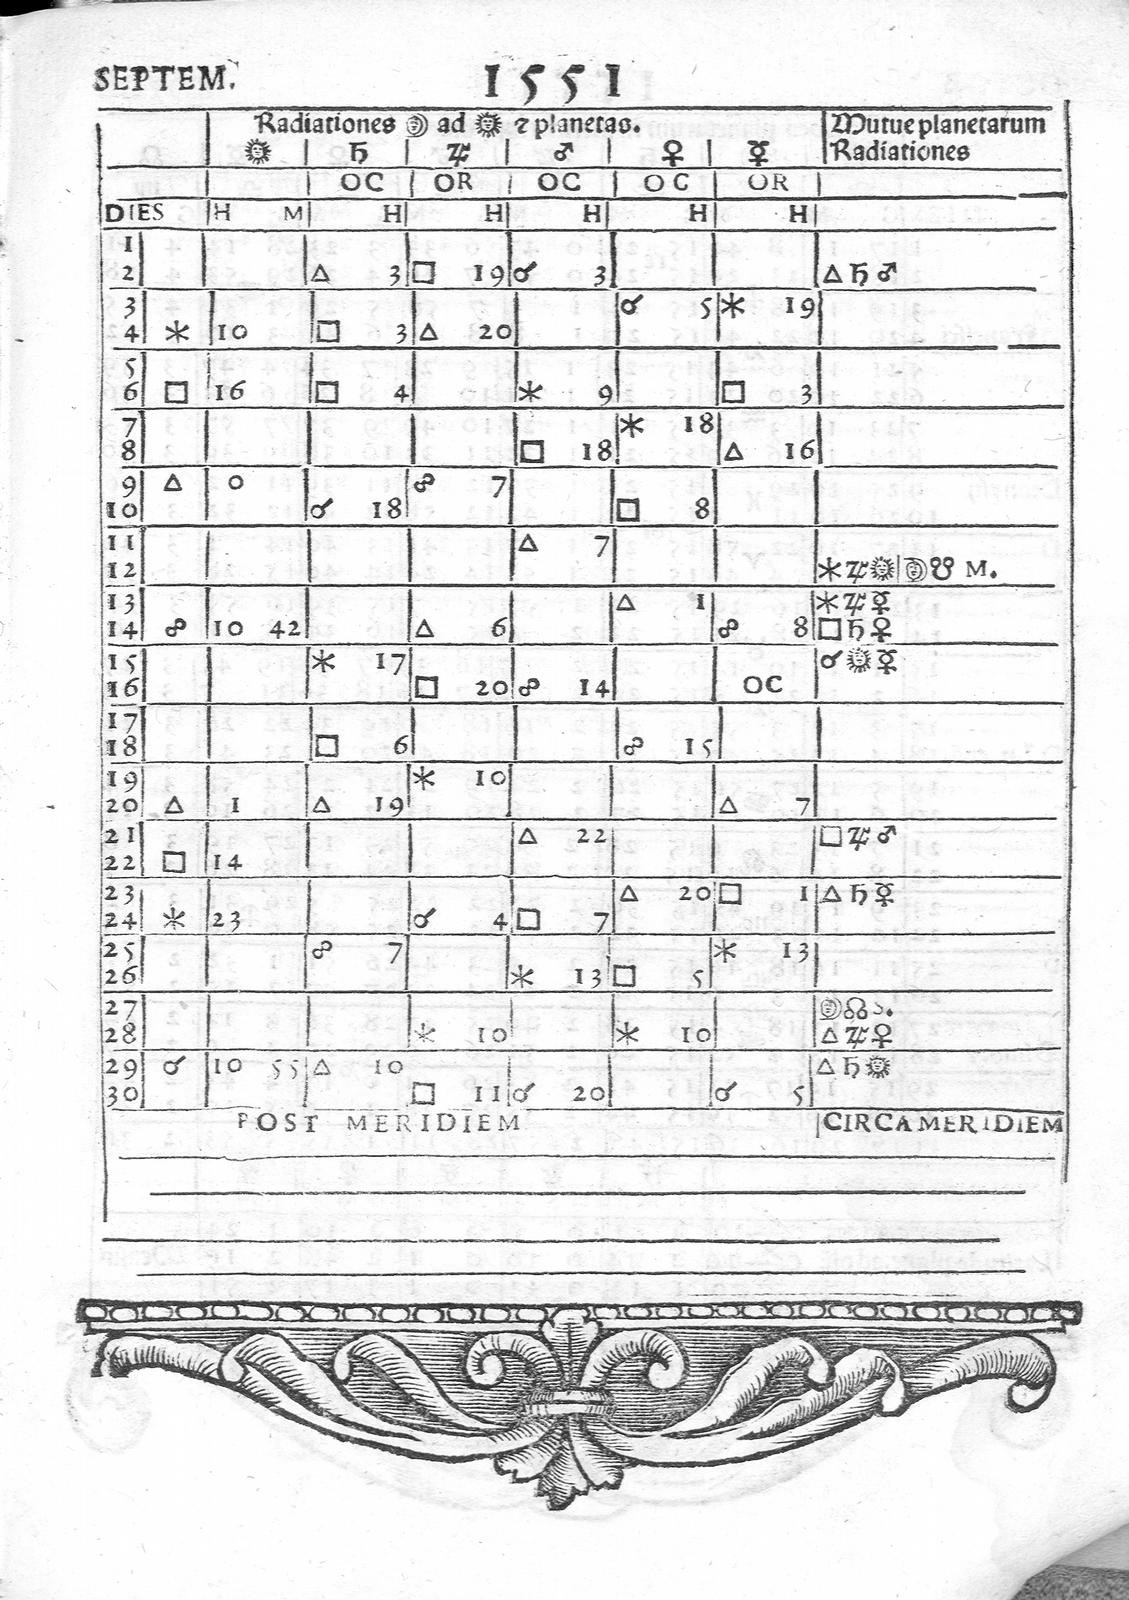 SEPTEM. 1551
Radiationes ☽ ad ☉ ⁊ planetas. Mutue planetarum
☉ ♄ ♃ ♂ ♀ ☿ Radiationes
OC OR OC OC OR
DIES H M H H H H H
1
2 △ 3 □ 19 ☌ 3 △ ♄ ♂
3 ☌ 5 ⚹ 19
4 ⚹ 10 □ 3 △ 20
5
6 □ 16 □ 4 ⚹ 9 □ 3
7 ⚹ 18
8 □ 18 △ 16
9 △ 0 ☍ 7
10 ☌ 18 □ 8
11 △ 7
12 ⚹ ♃ ☉ ☽ ☋ M.
13 △ 1 ⚹ ♃ ☿
14 ☍ 10 42 △ 6 ☍ 8 □ ♄ ♀
15 ⚹ 17 ☌ ☉ ☿
16 □ 20 ☍ 14 OC
17
18 □ 6 ☍ 15
19 ⚹ 10
20 △ 1 △ 19 △ 7
21 △ 22 □ ♃ ♂
22 □ 14
23 △ 20 □ 1 △ ♄ ☿
24 ⚹ 23 ☌ 4 □ 7
25 ☍ 7 ⚹ 13
26 ⚹ 13 □ 5
27 ☽ ☊ s.
28 ⚹ 10 ⚹ 10 △ ♃ ♀
29 ☌ 10 55 △ 10 △ ♄ ☉
30 □ 11 ☌ 20 ☌ 5
POST MERIDIEM CIRCA MERIDIEM